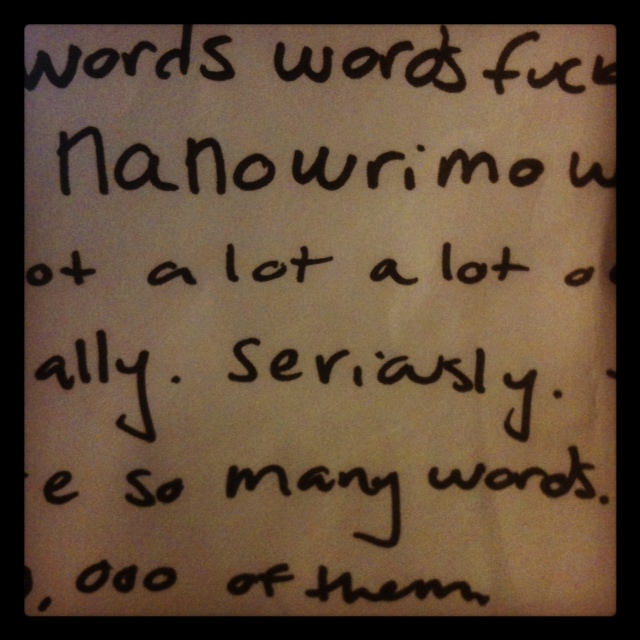 words words fuck
nanowrimo w
ot a lot a lot o
ally. Seriously.
e so many words.
,000 of them